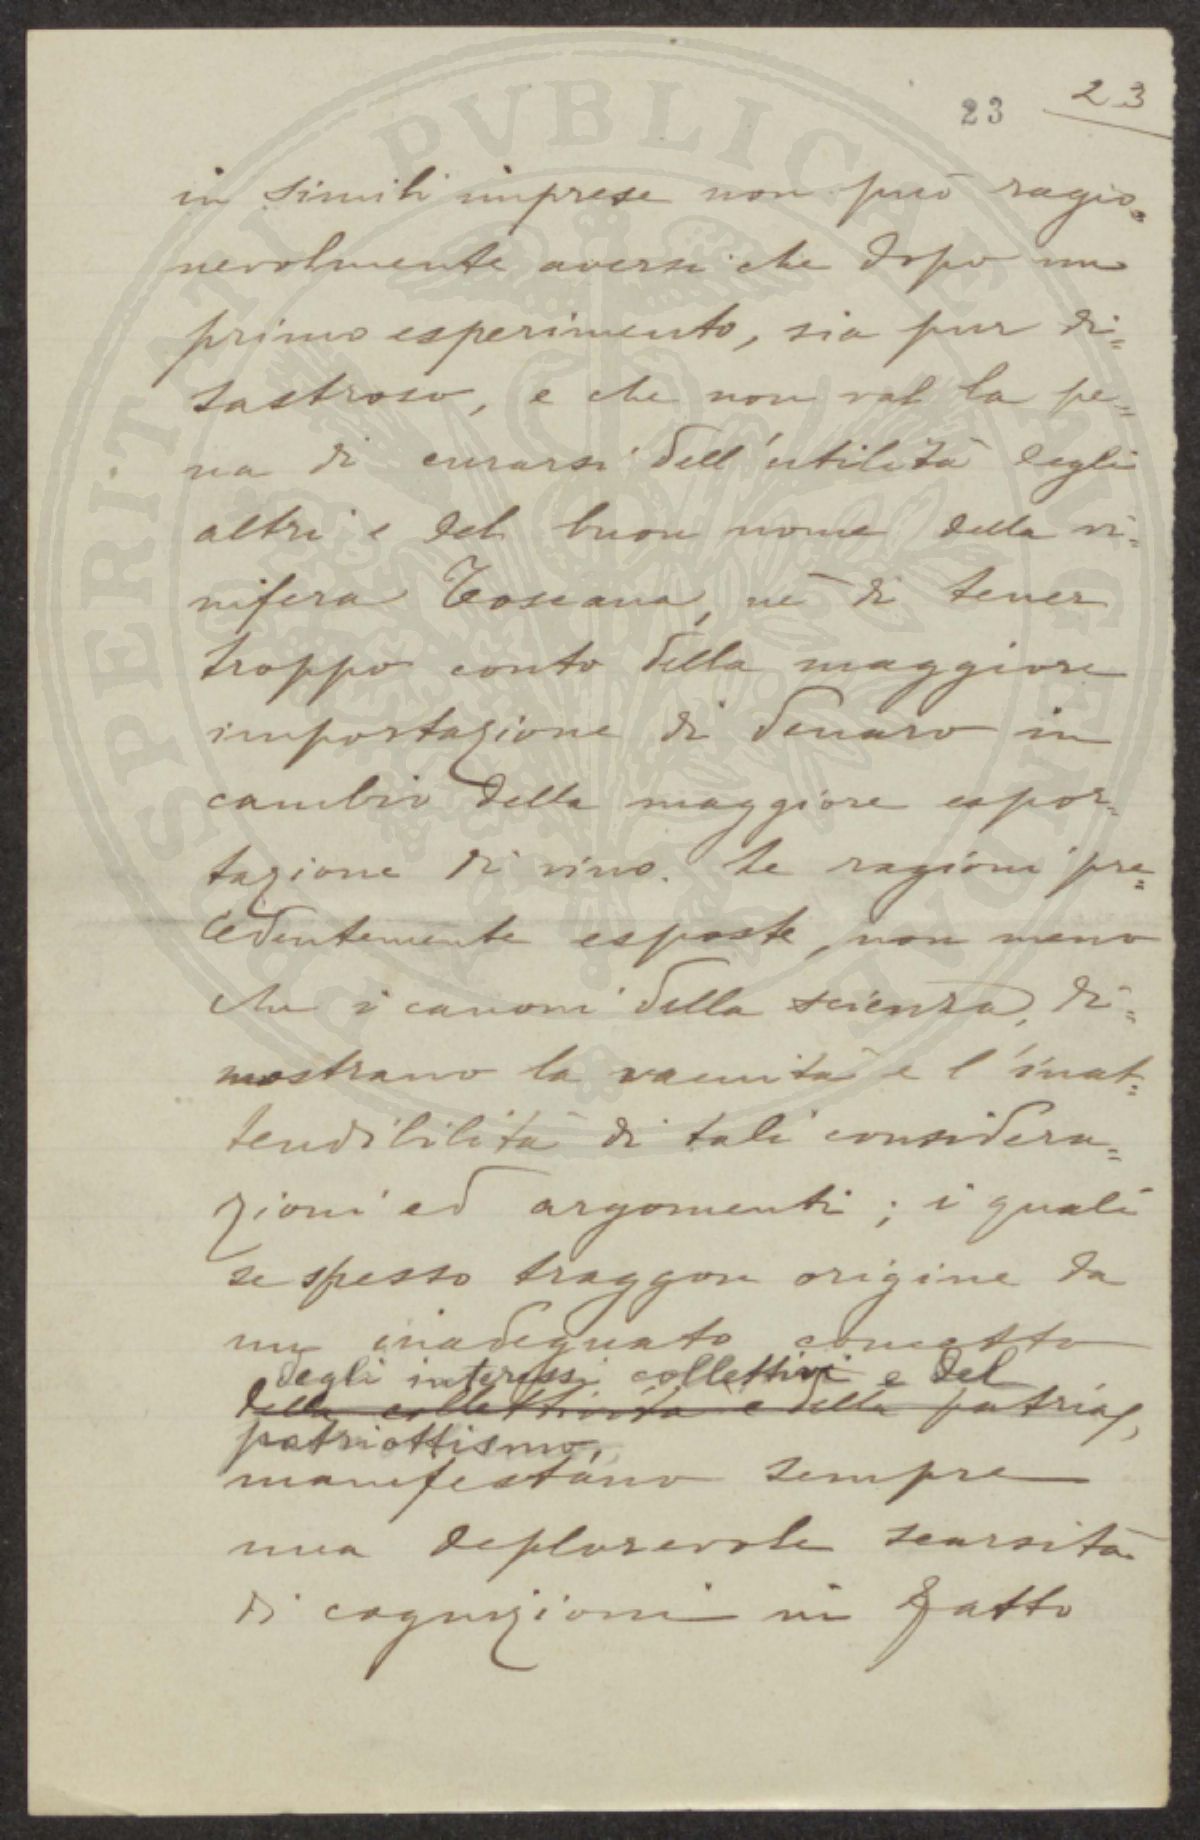 23 23
in simili imprese non può ragio=
nevolmente aversi che dopo un
primo esperimento, sia pur di=
sastroso, e che non val la pe=
na di curarsi dell'utilità degli
altri e del buon nome della vi=
nifera Toscana, nè di tener
troppo conto della maggiore
importazione di denaro in
cambio della maggiore espor=
tazione di vino. Le ragioni pre=
cedentemente esposte, non meno
che i canoni della scienza, di=
mostrano la vacuità e l'inat=
tendibilità di tali considera=
zioni ed argomenti; i quali
se spesso traggon origine da
un inadeguato concetto
degli interessi collettivi e del
della collettività e della patria,
patriottismo,
manifestano sempre
una deplorevole scarsità
di cognizioni in fatto
PROSPERITATI PVBLICAE AVGENDAE